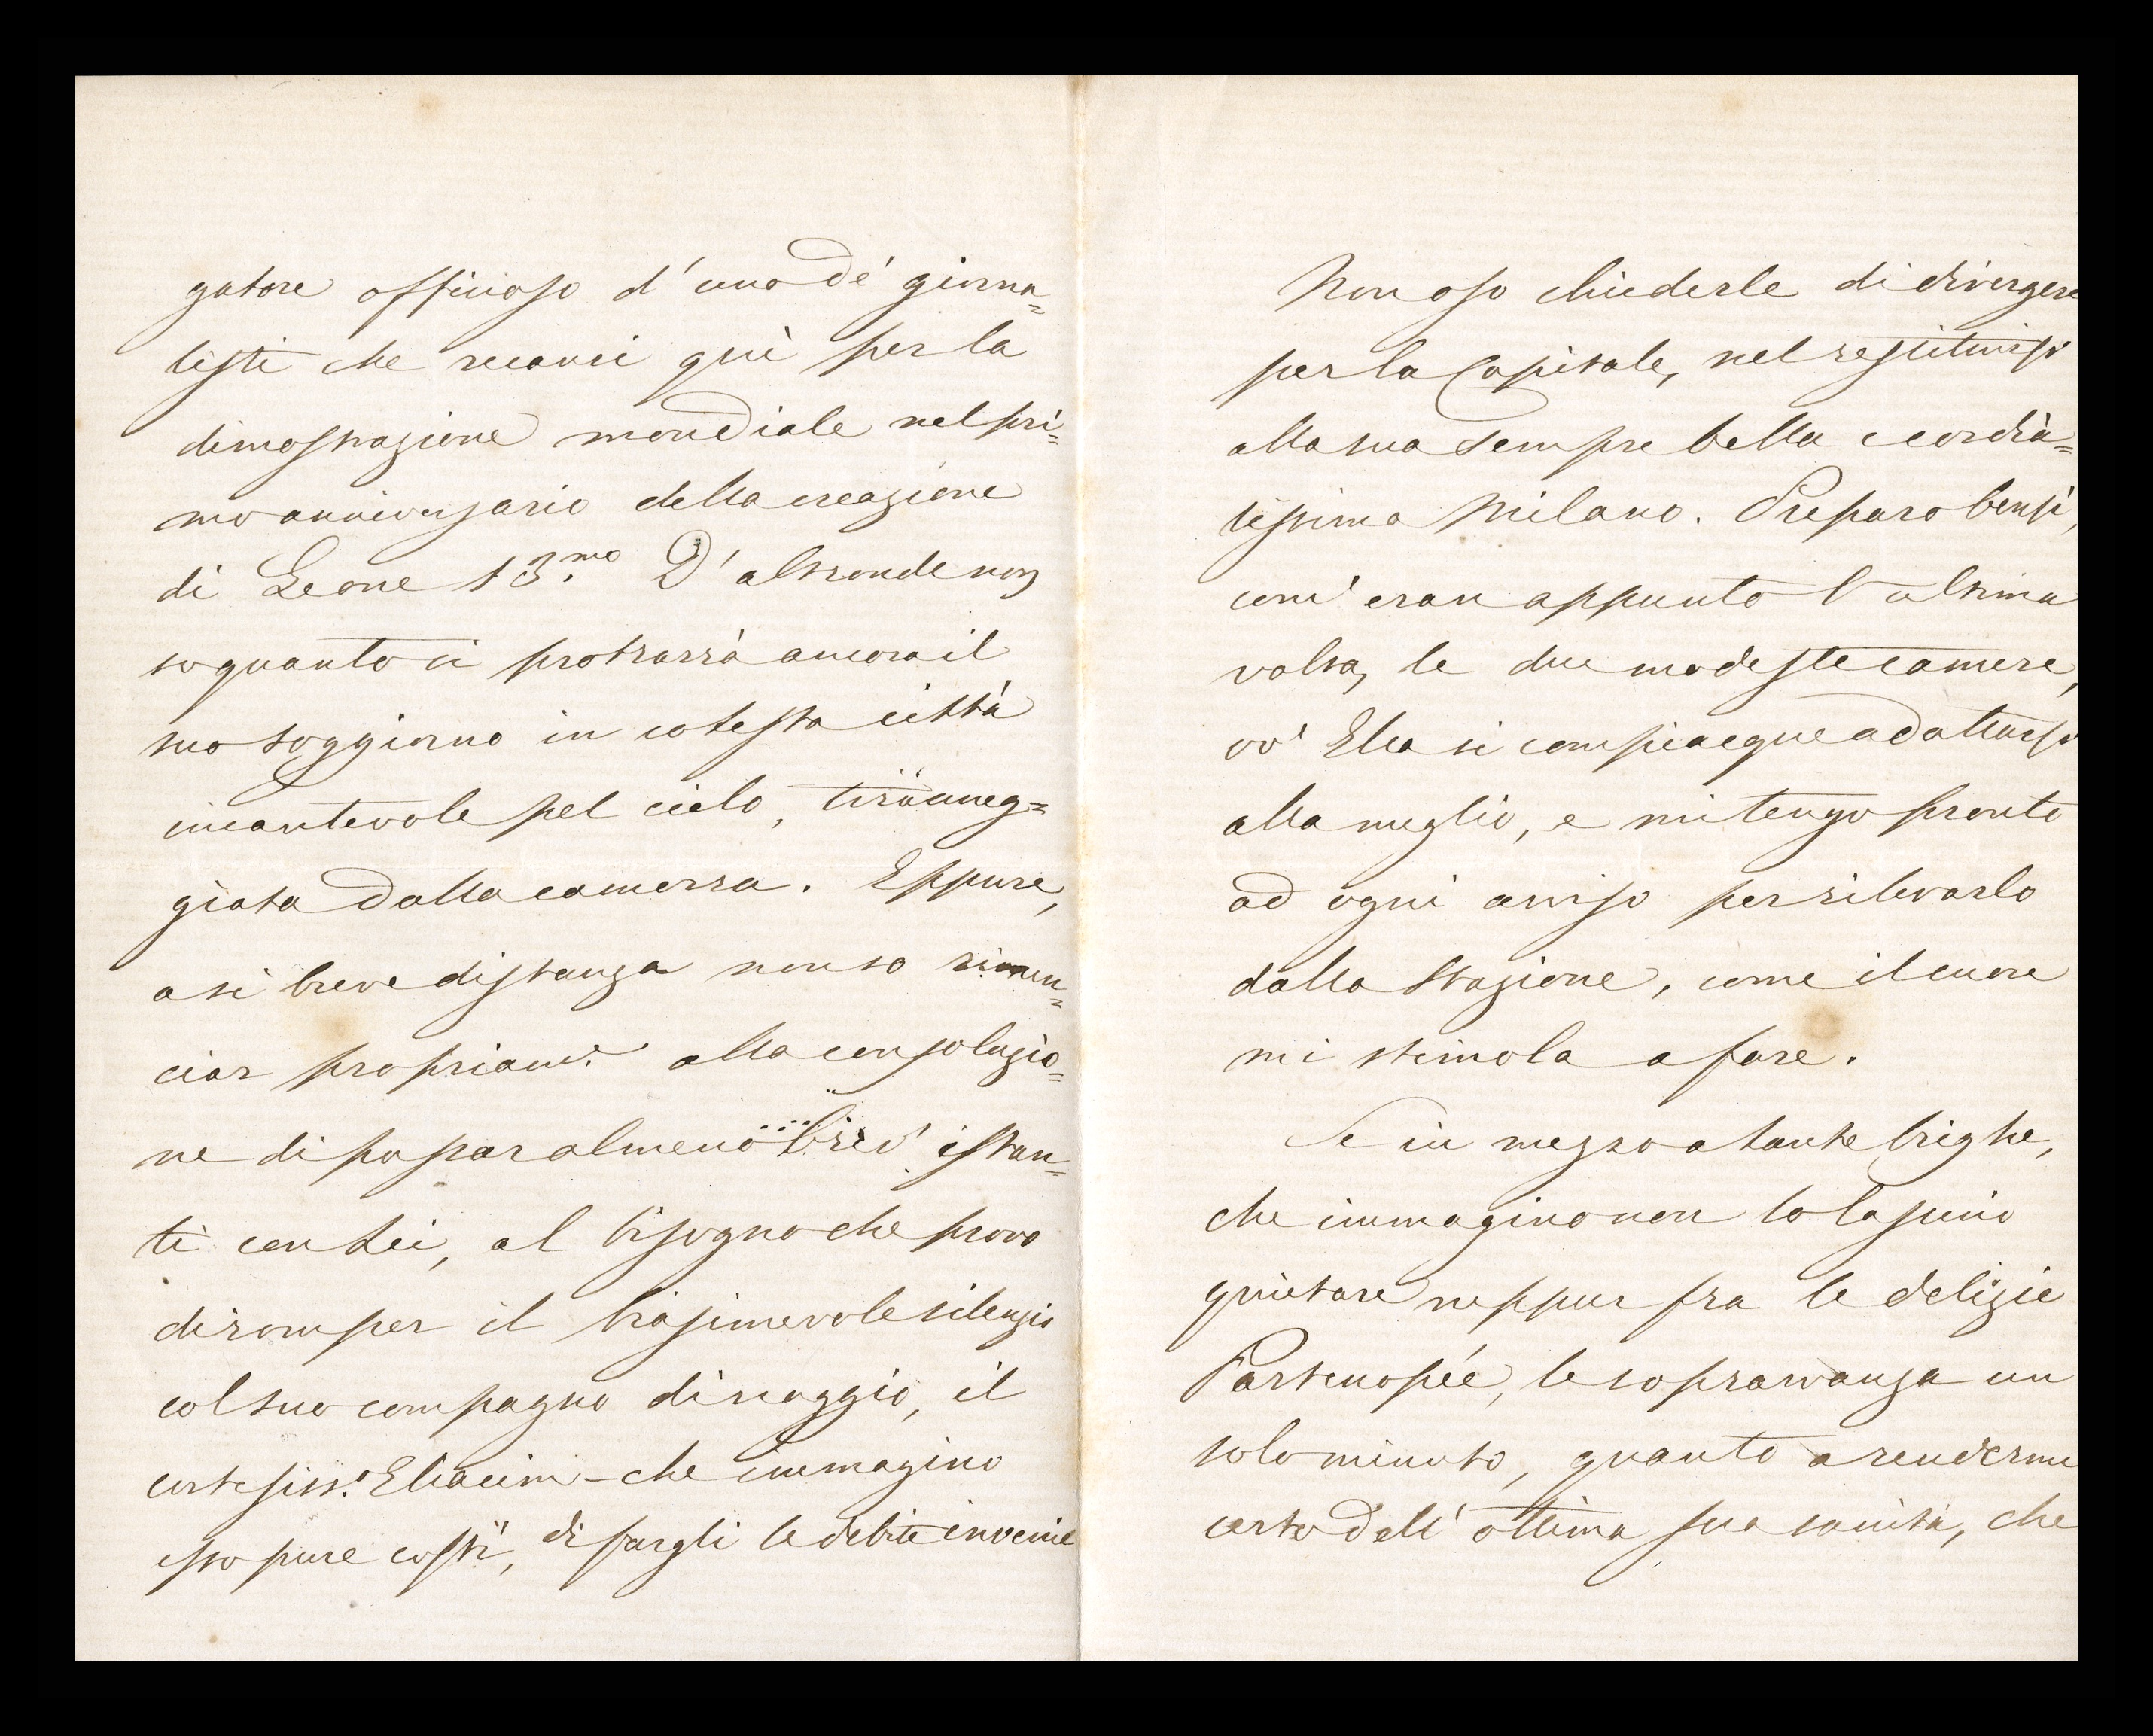 gatore officioso d'uno de' giorna=
listi che recansi quì per la
dimostrazione mondiale nel pri=
mo anniversario della creazione
di Leone 13.mo D'altronde non
so quanto ci protrarrà ancora il
suo soggiorno in cotesta città
incantevole pel cielo, tiranneg=
giata dalla camorra. Eppure,
a sì breve distanza non so rinun=
ciar propriam.e alla consolazio=
ne di passar almeno brev' istan=
ti con Lei, al bisogno che provo
di romper il biasimevole silenzio
col suo compagno di viaggio, il
cortesiss.o Eliacim – che immagino
esso pure costì, di fargli le debite
Non oso chiederle di divergere
per la Capitale, nel restituirsi
alla sua sempre bella e cordia=
lissima Milano. Preparo bensì,
com' eran appunto l'ultima
volta, le due modeste camere,
ov' Ella si compiacque adattarsi
alla meglio, e mi tengo pronto
ad ogni avviso per rilevarlo
dalla Stazione, come il cuore
mi stimola a fare.
Se in mezzo a tante brighe,
che immagino non lo lascino
quietare neppur fra le delizie
Partenopée, le sopravvanza un
solo minuto, quanto a rendermi
certo dell' ottima sua sanità, che